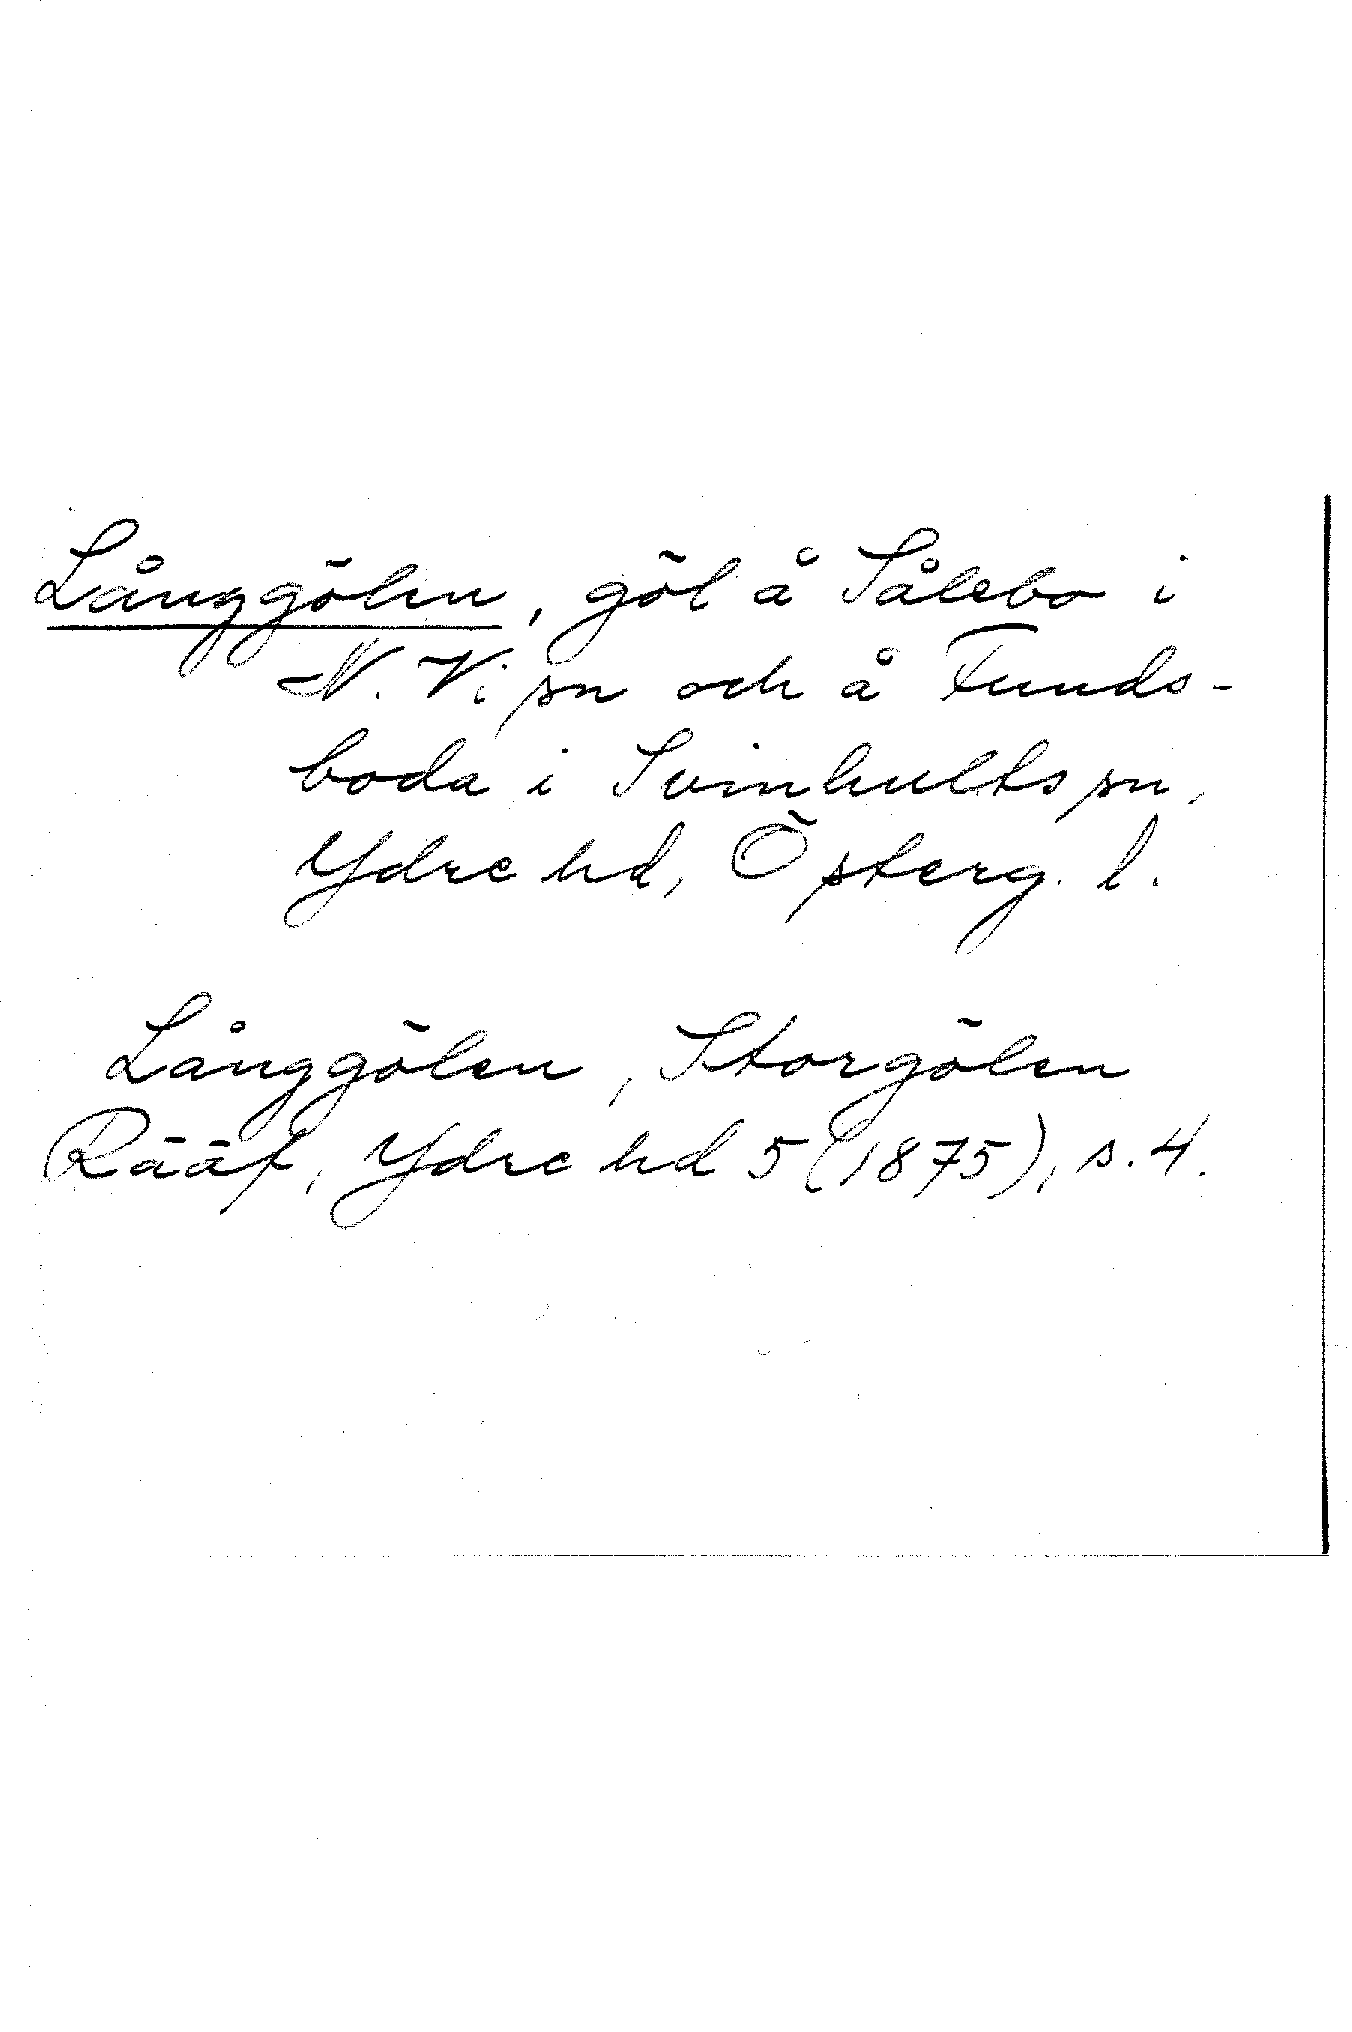 Långgölen, göl å Sålebo i
N. Vi sn och å Funds-
boda i Svinhults sn,
Ydre hd, Österg. l.
Långgölen, Storgölen
Rääf, Ydre hd 5 (1875), s. 4.